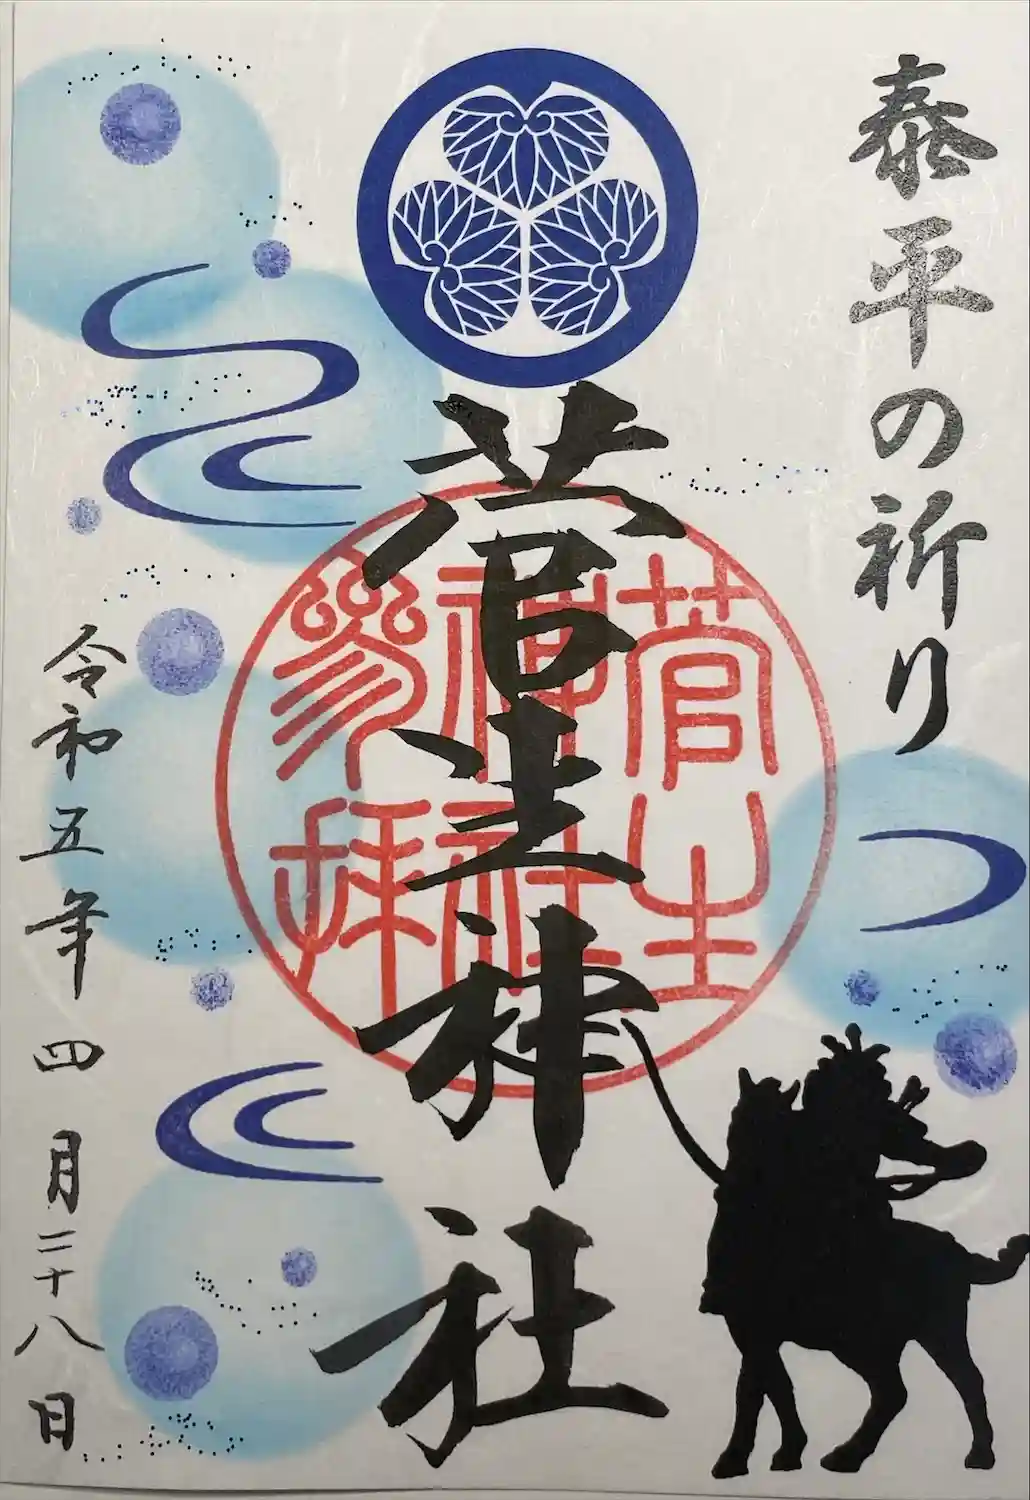 泰平の祈り
菅生神社
菅生
神社
參拝
令和五年四月二十八日